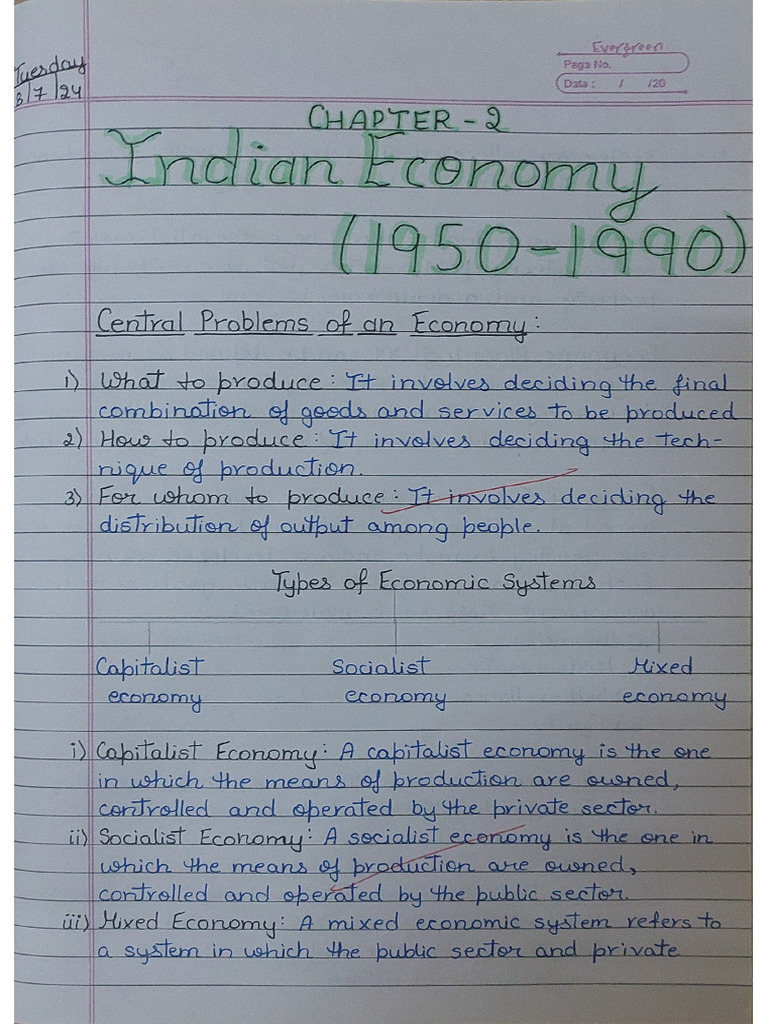 Evergreen
Page No.
Date : / /20
Tuesday
8/7/24
CHAPTER - 2
Indian Economy
(1950-1990)
Central Problems of an Economy:
1) What to produce: It involves deciding the final
combination of goods and services to be produced
2) How to produce: It involves deciding the tech-
nique of production.
3) For whom to produce: It involves deciding the
distribution of output among people.
Types of Economic Systems
Capitalist economy
Socialist economy
Mixed economy
i) Capitalist Economy: A capitalist economy is the one
in which the means of production are owned,
controlled and operated by the private sector.
ii) Socialist Economy: A socialist economy is the one in
which the means of production are owned,
controlled and operated by the public sector.
iii) Mixed Economy: A mixed economic system refers to
a system in which the public sector and private